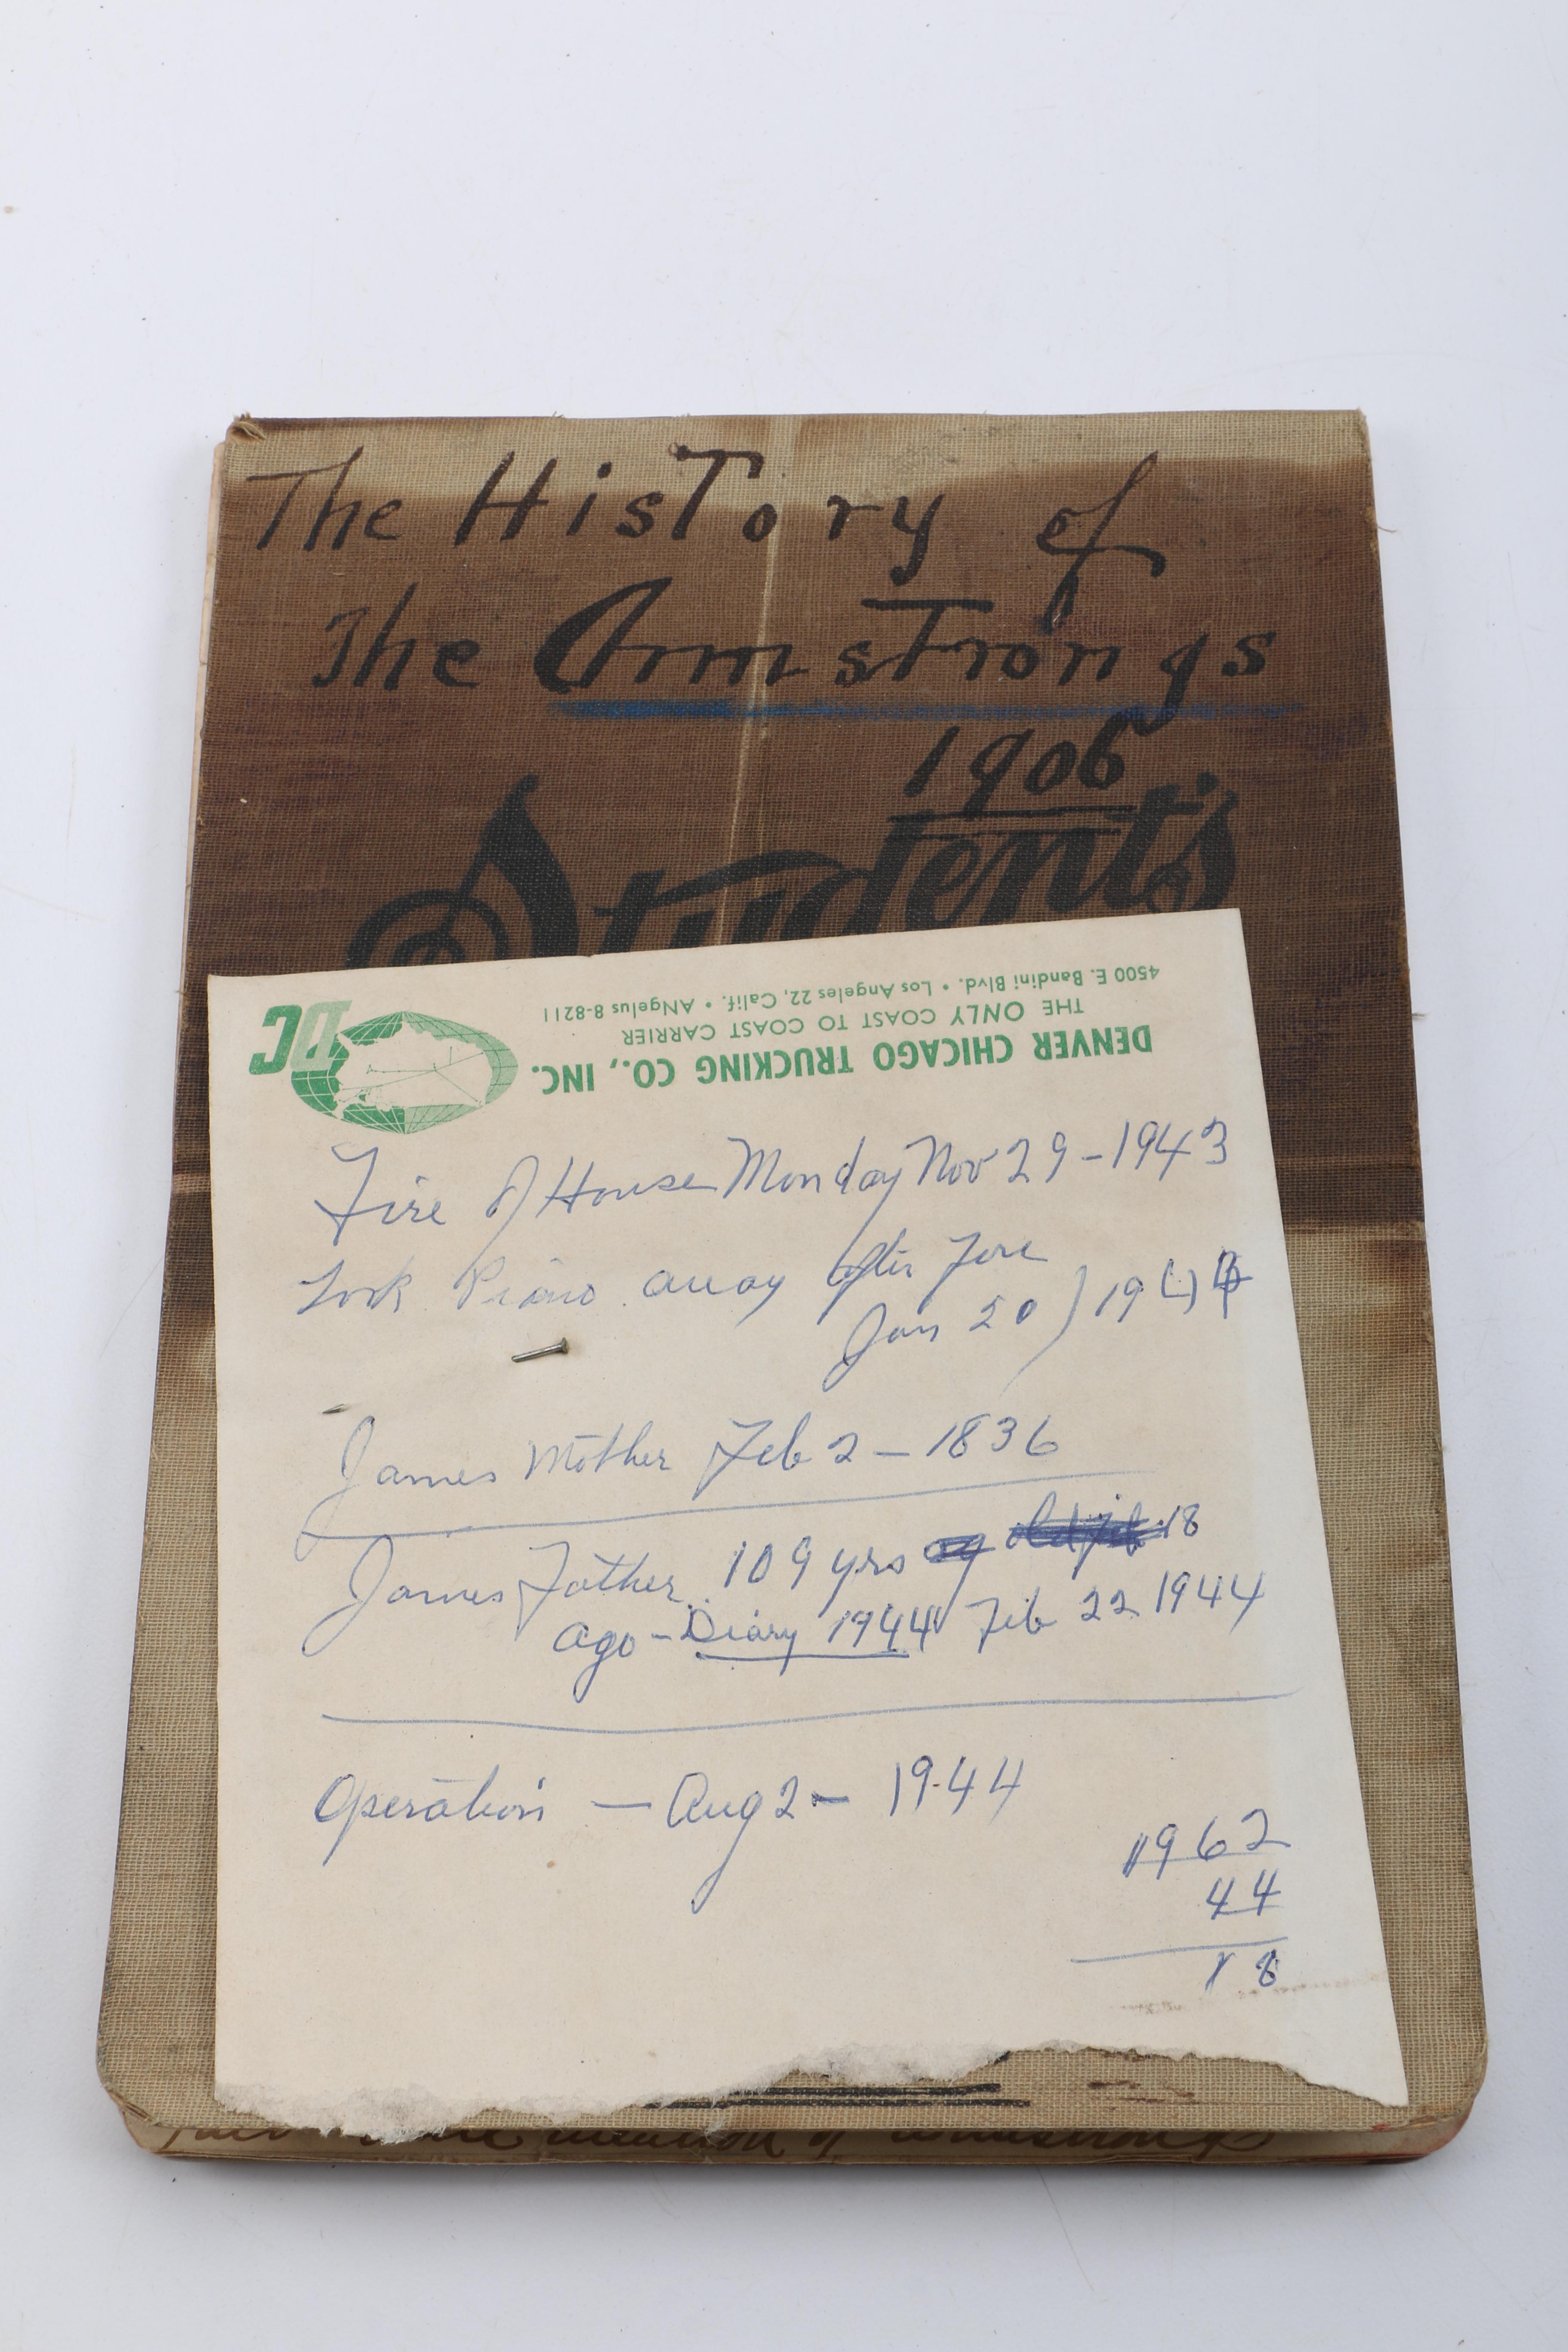 The History of
The Armstrongs
1906
Student's
4500 E. Bandini Blvd. • Los Angeles 22, Calif. • ANgelus 8-8211
THE ONLY COAST TO COAST CARRIER
DENVER CHICAGO TRUCKING CO., INC.
DC
Fire of House Monday Nov 29-1943
Took Piano away after Fire
Jan 20) 1944
James Mother Feb 2 - 1836
James Father. 109 yrs 18
ago - Diary 1944 Feb 22 1944
Operation - Aug 2 - 1944
1962
44
18
mention of Armstrongs